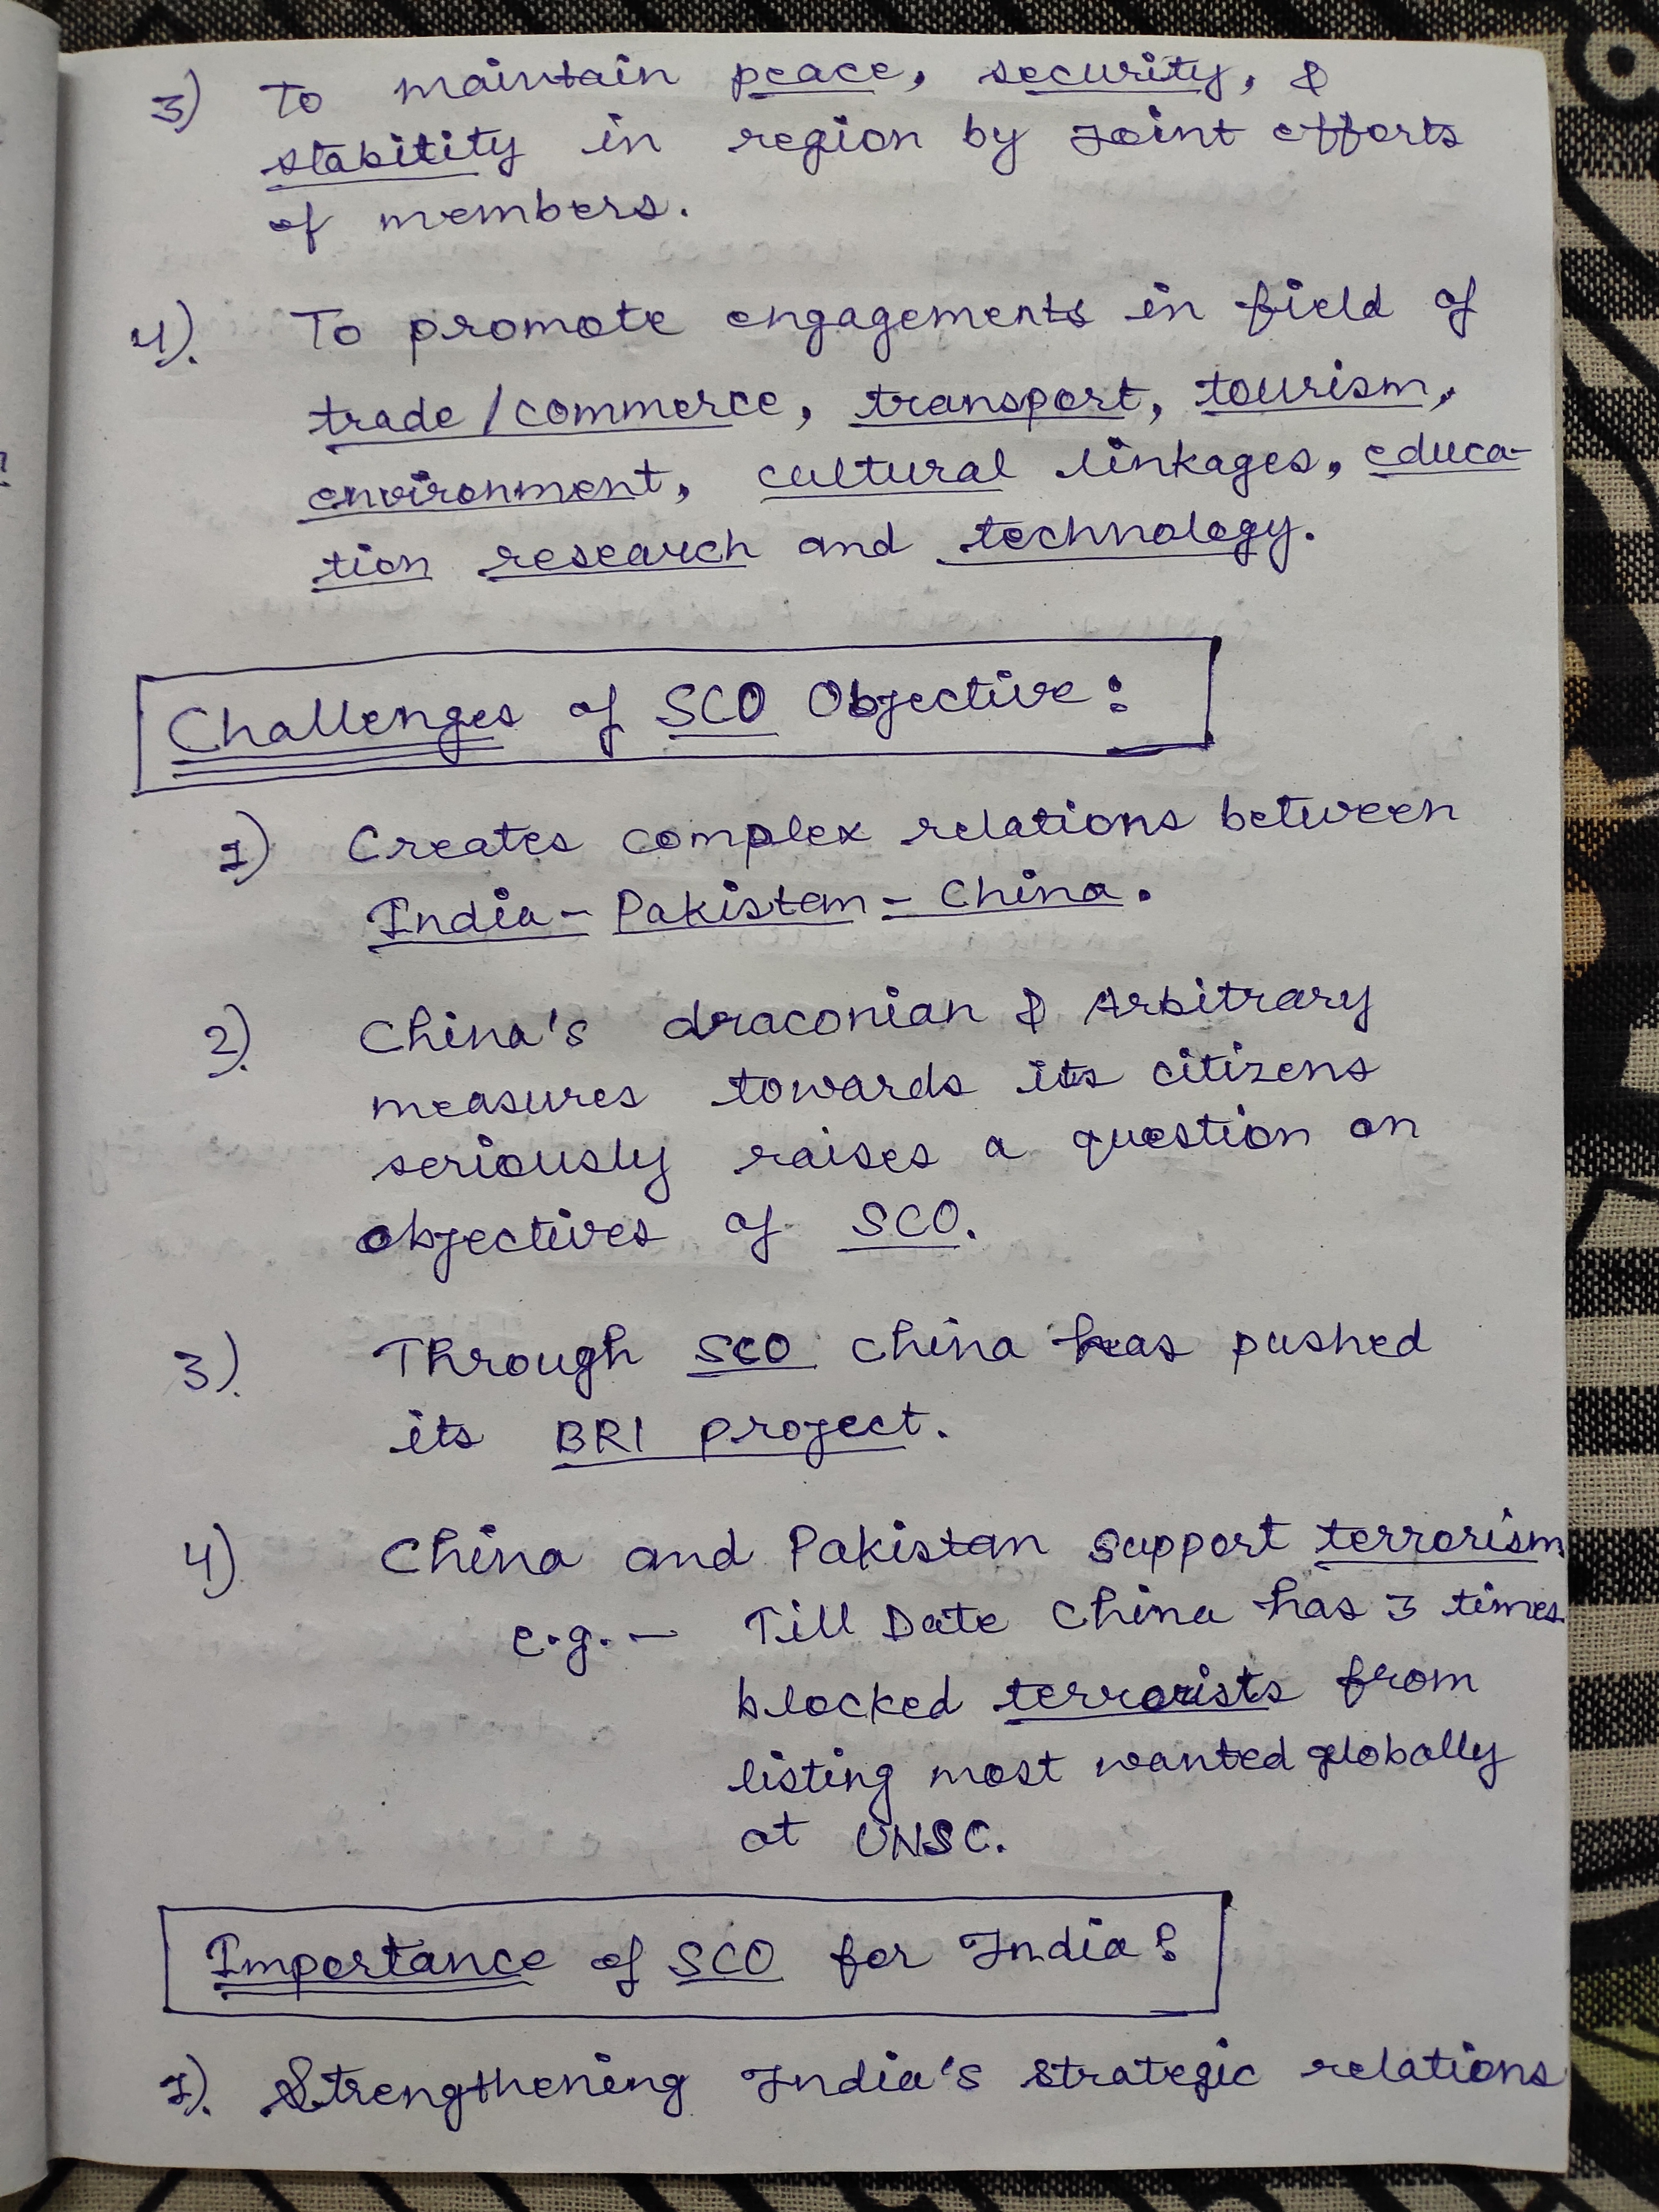 3) To maintain peace, security, &
stability in region by Joint efforts
of members.
4). To promote engagements in field of
trade/commerce, transport, tourism,
environment, cultural linkages, educa-
tion research and technology.
Challenges of SCO Objective:
1) Creates complex relations between
India-Pakistan-China.
2). China's draconian & Arbitrary
measures towards its citizens
seriously raises a question on
objectives of SCO.
3). Through SCO China has pushed
its BRI project.
4) China and Pakistan support terrorism
e.g. - Till Date China has 3 times
blocked terrorists from
listing most wanted globally
at UNSC.
Importance of SCO for India:
1). Strengthening India's strategic relations